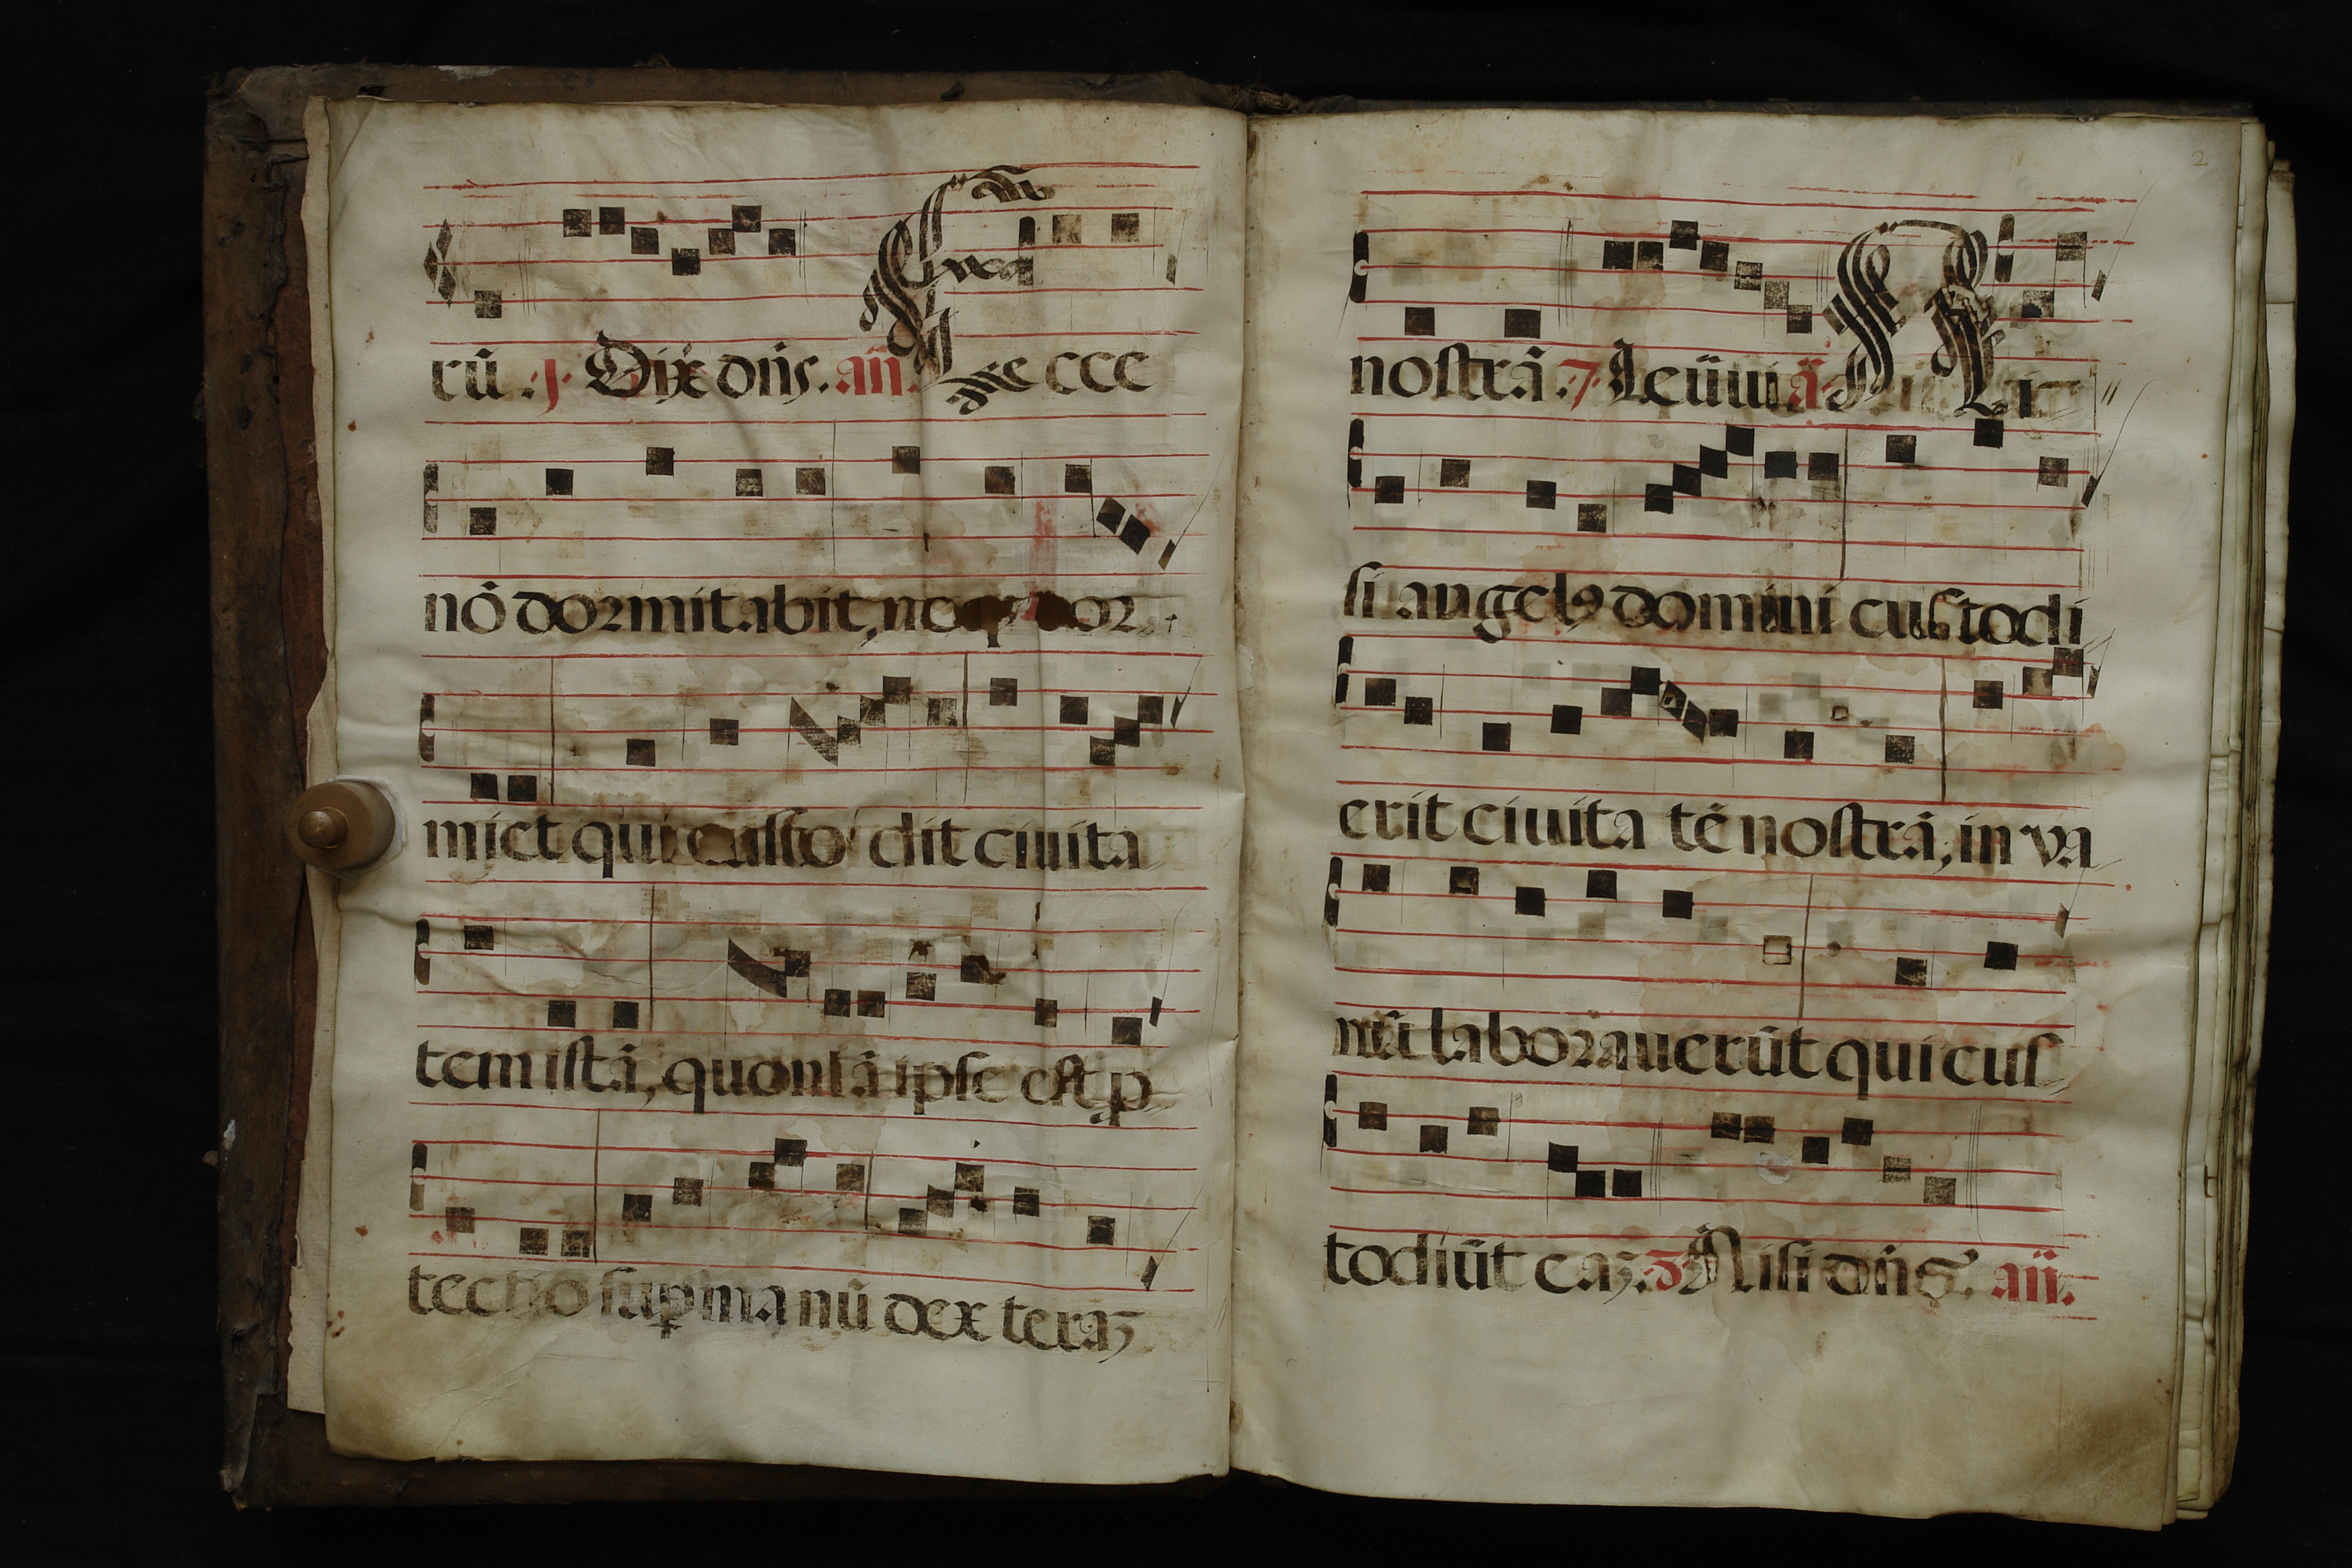 rũ .j. Dix̃ dñs. añ.
Ecce
nõ dormitabit, neq; dor
miet qui custo dit ciuita
tem istã, quoniã ipse est p
tectio sup manũ dexteraʒ
2
nostrã .7. Leũui ã Ni
si angelꝰ domini custodi
erit ciuita tẽ nostrã, in va
nũ laborauerũt qui cus
todiũt eaʒ. Nisi dñs. añ.